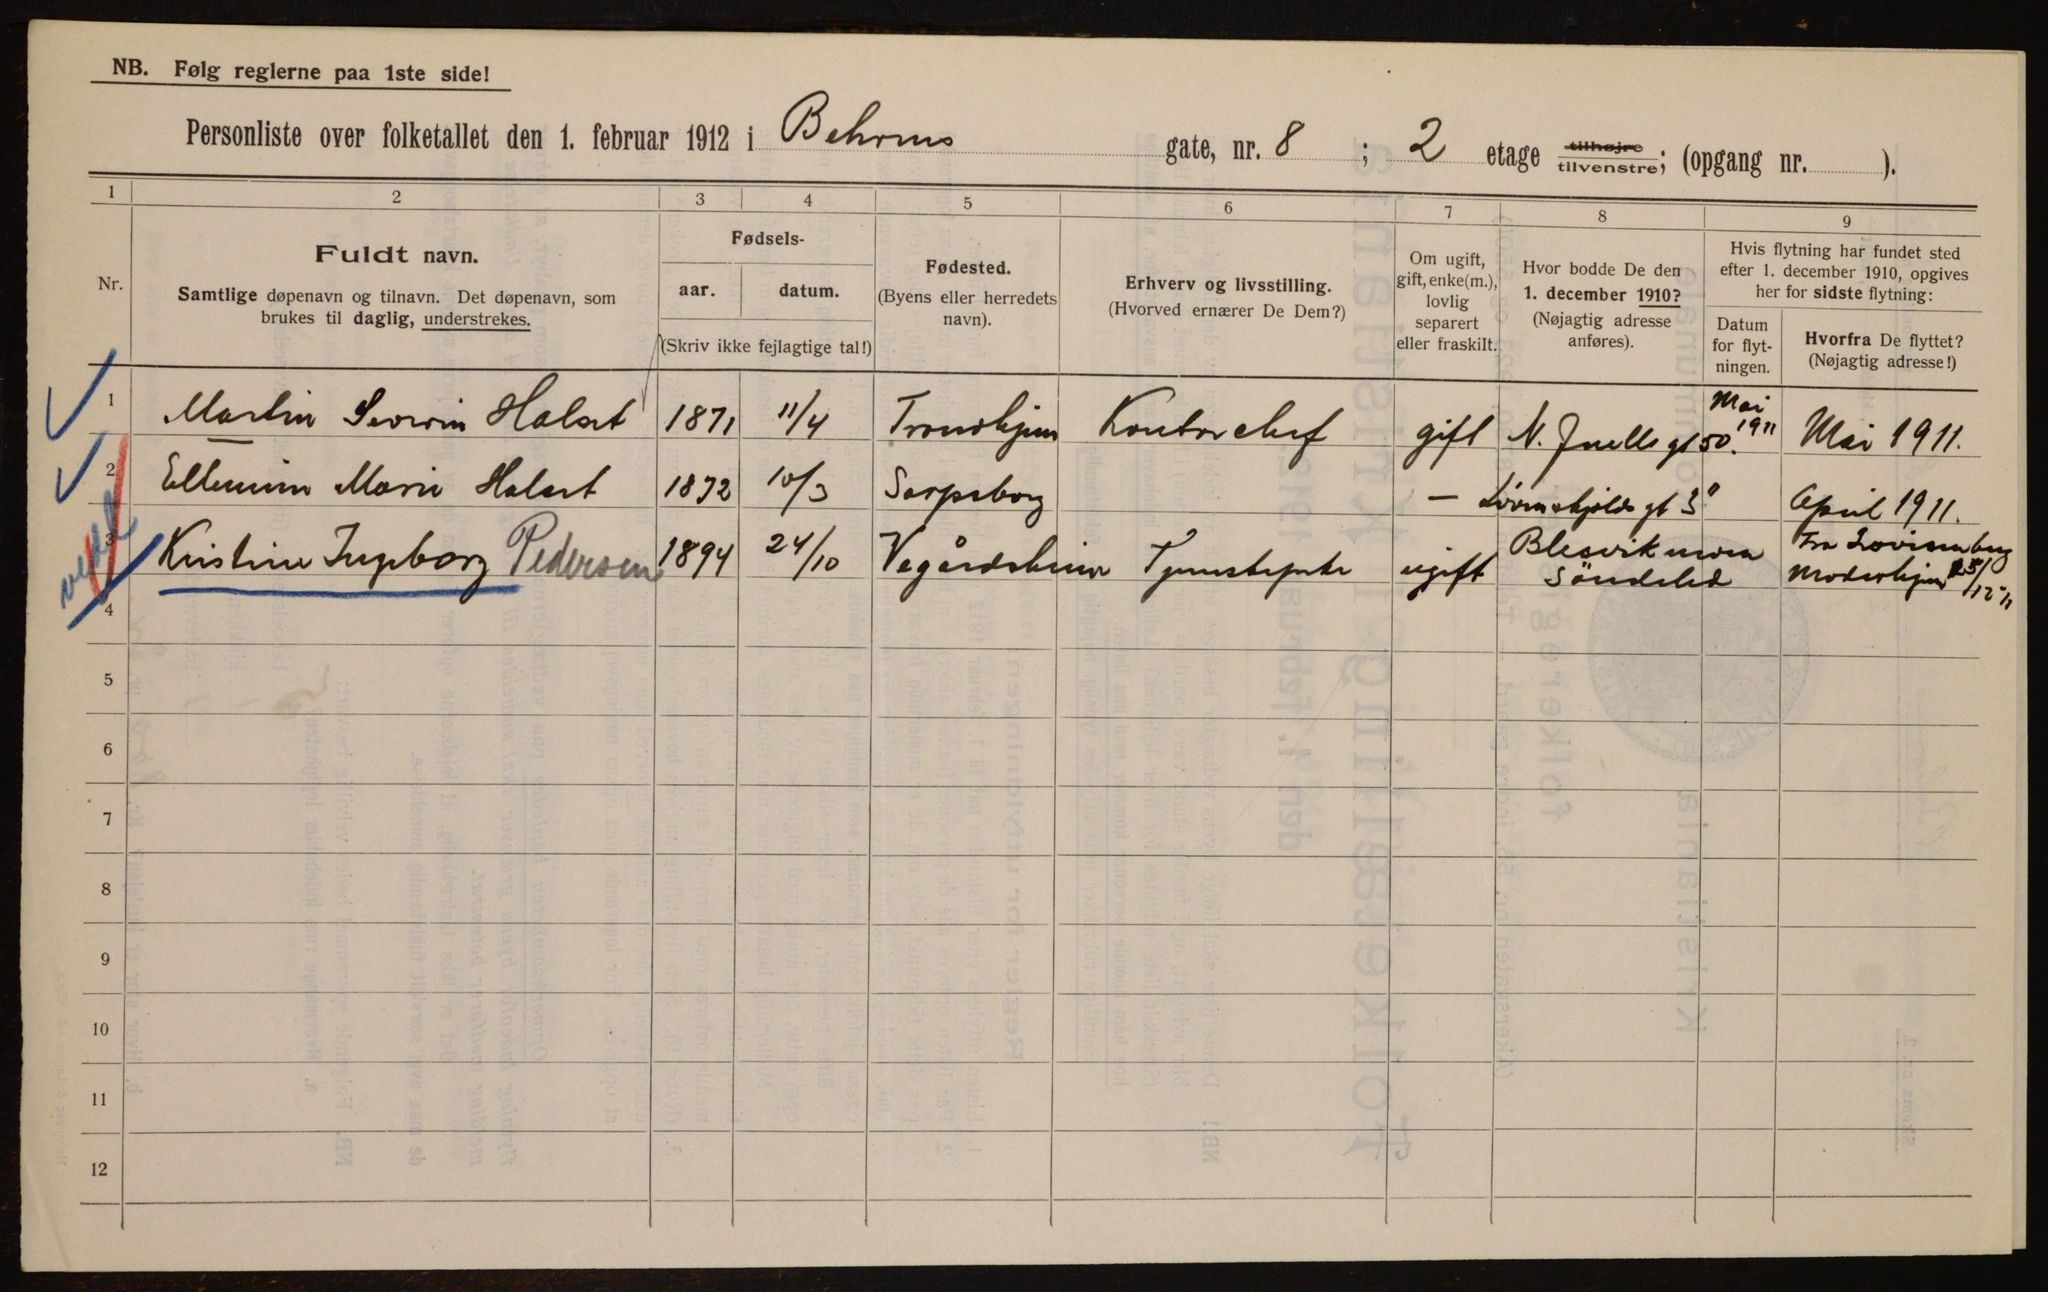 NB. Følg reglerne paa 1ste side!
Personliste over folketallet den 1. februar 1912 i Behrens gate, nr. 8 ; 2 etage tilhøjre tilvenstre; (opgang nr. ).
1 2 3 4 5 6 7 8 9
Nr.
Fuldt navn.
Samtlige døpenavn og tilnavn. Det døpenavn, som
brukes til daglig, understrekes.
Fødsels-
aar. datum.
(Skriv ikke fejlagtige tal!)
Fødested.
(Byens eller herredets
navn).
Erhverv og livsstilling.
(Hvorved ernærer De Dem?)
Om ugift,
gift, enke(m.),
lovlig
separert
eller fraskilt.
Hvor bodde De den
1. december 1910?
(Nøjagtig adresse
anføres).
Hvis flytning har fundet sted
efter 1. december 1910, opgives
her for sidste flytning:
Datum
for flyt-
ningen.
Hvorfra De flyttet?
(Nøjagtig adresse!)
1 Martin Severin Halset 1871 11/4 Trondhjem Kontorchef gift N. Juells gt 50. Mai 1911 Mai 1911.
2 Marie Halset 1872 10/3 Sarpsborg — Løvenskjolds gt 3 April 1911.
3 Kristine Ingeborg Pedersen 1894 24/10 Vegårdsheien ugift Søndeled Fra Lovisenberg
4
5
6
7
8
9
10
11
12